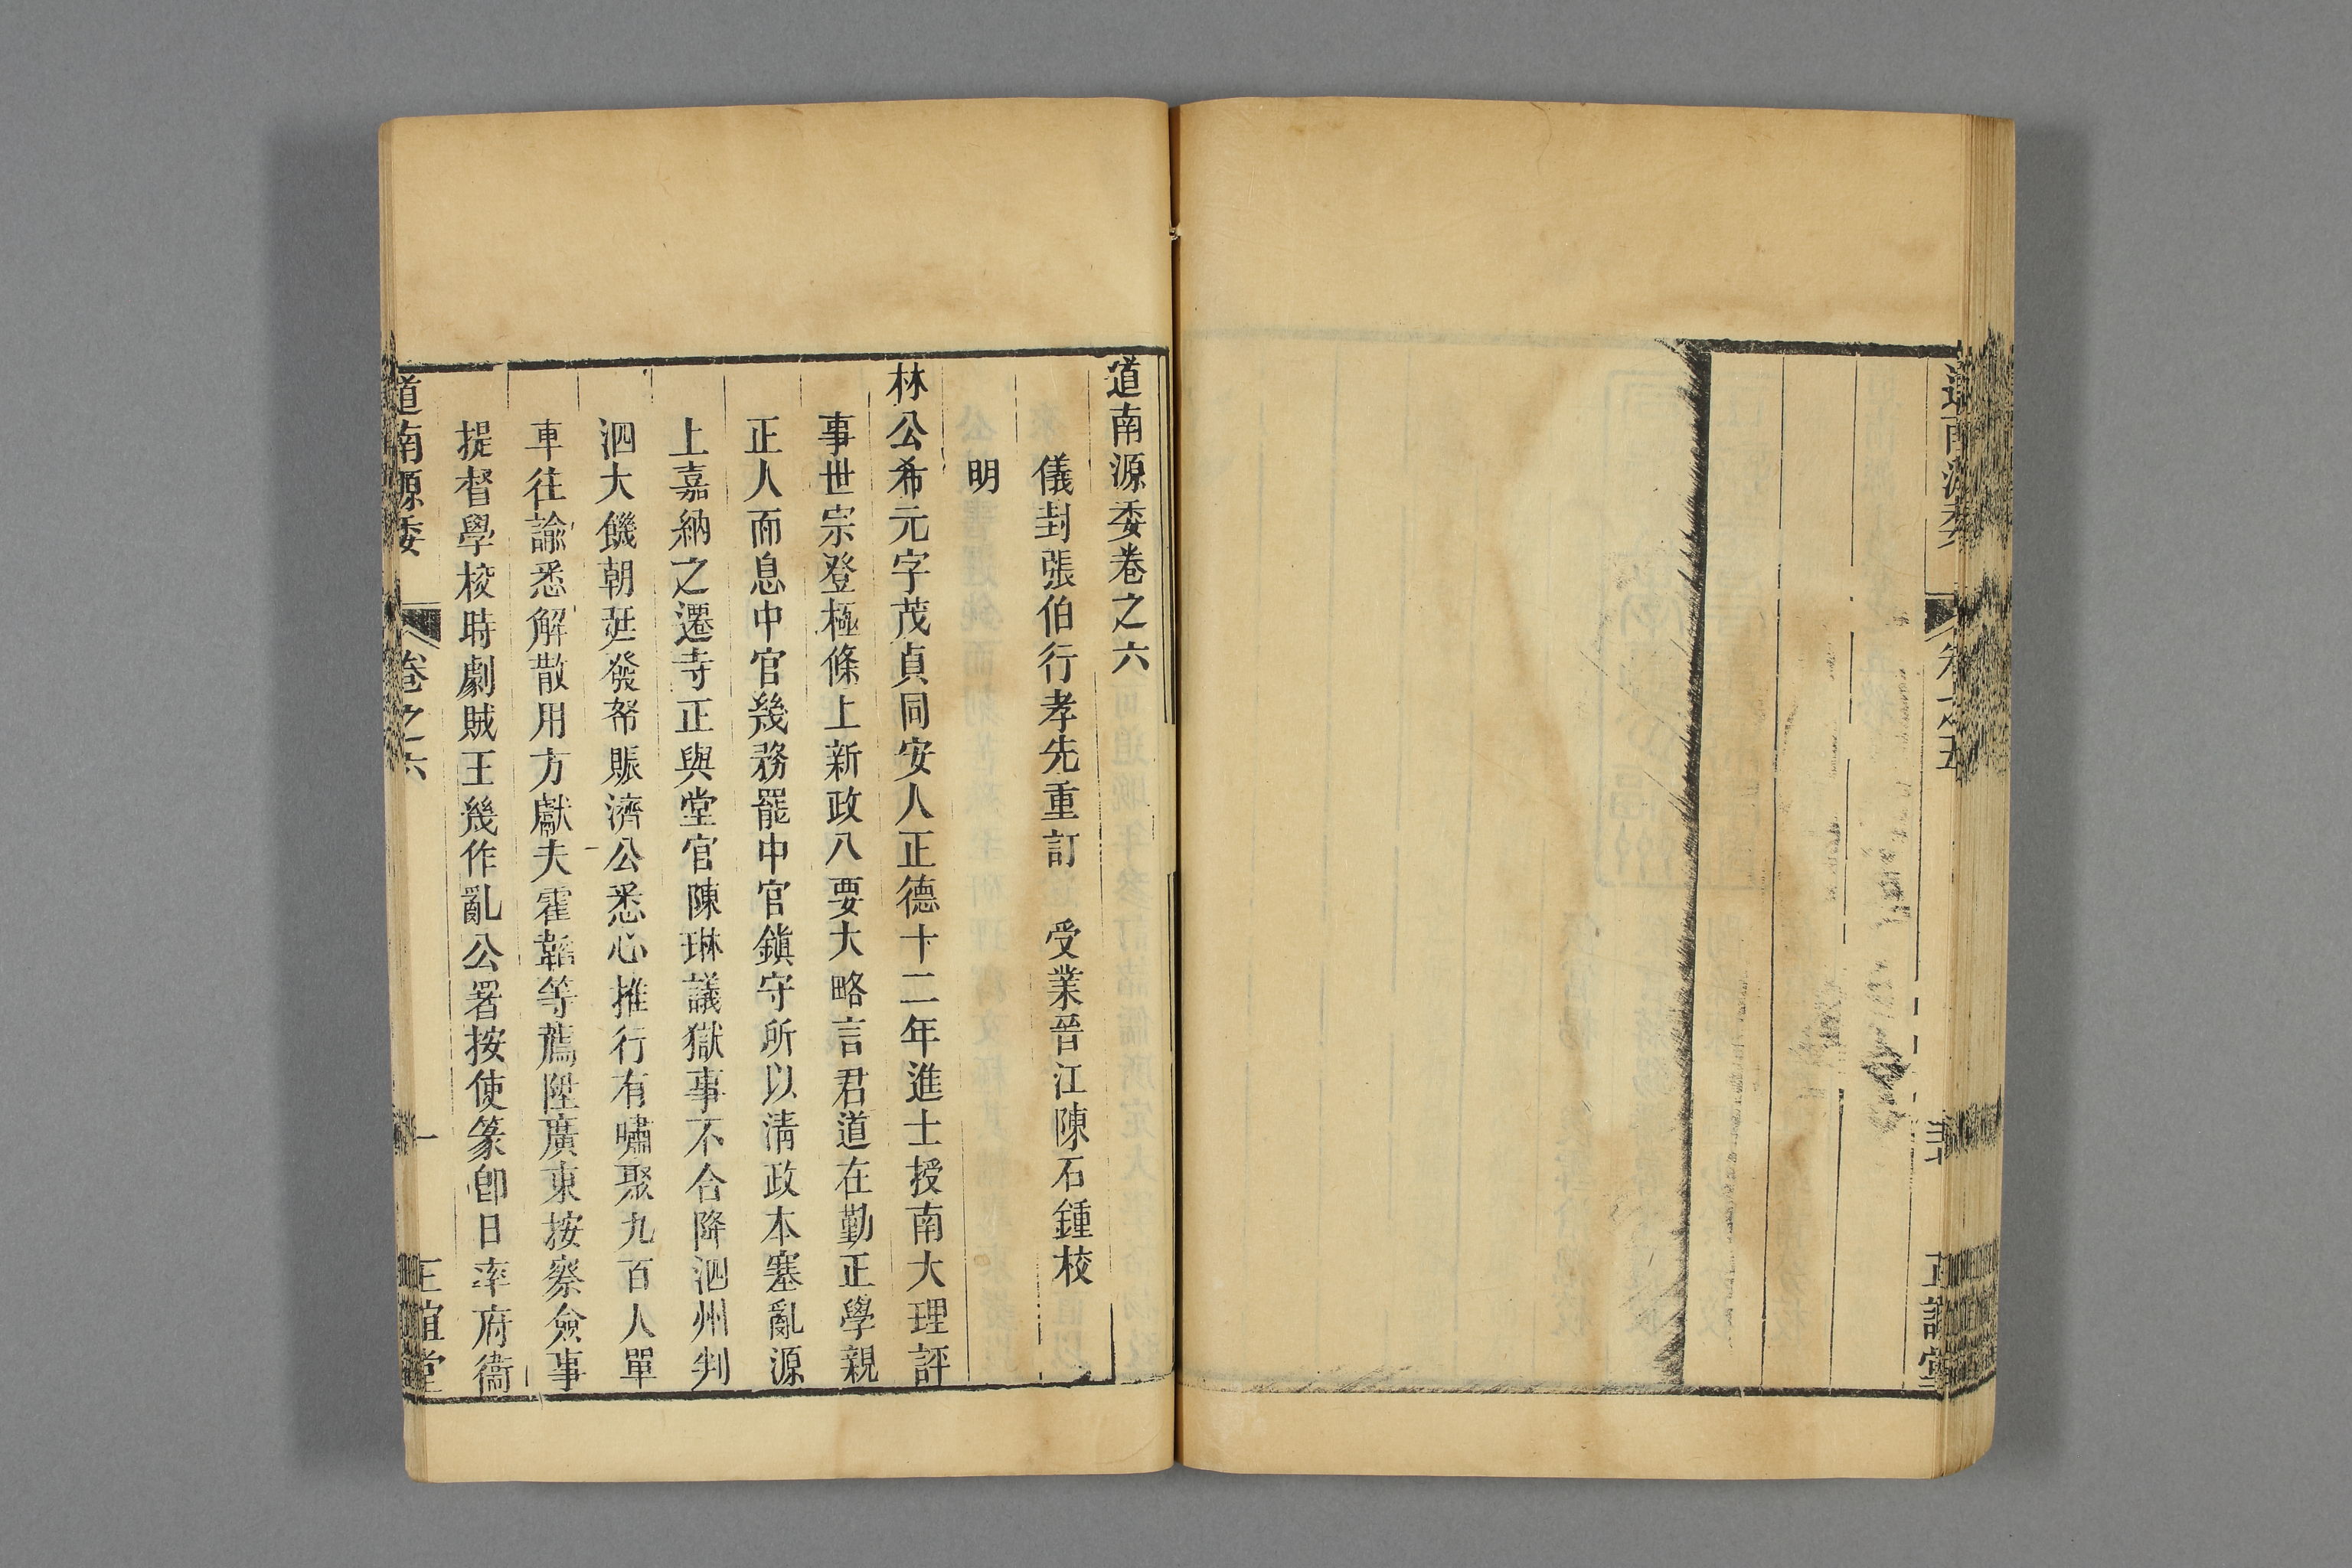 正誼堂
道南源委卷之六
儀封張伯行孝先重訂　受業晉江陳石鍾校
明
林公希元字茂貞同安人正德十二年進士授南大理評
事世宗登極條上新政八要大略言君道在勤正學親
正人而息中官幾務罷中官鎮守所以清政本塞亂源
上嘉納之遷寺正與堂官陳琳議獄事不合降泗州判
泗大饑朝廷發帑賑濟公悉心推行有嘯聚九百人單
車往諭悉解散用方獻夫霍韜等薦陞廣東按察僉事
提督學校時劇賊王幾作亂公署按使篆卽日率府衞
道南源委　卷之六　一　正誼堂